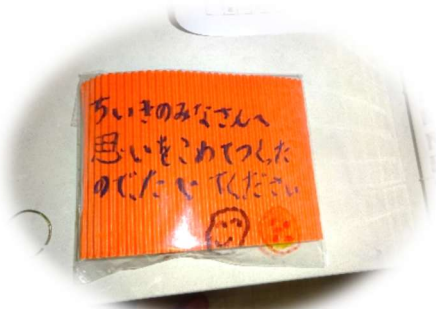 ちいきのみなさんへ
思いをこめてつくった
ので、てください